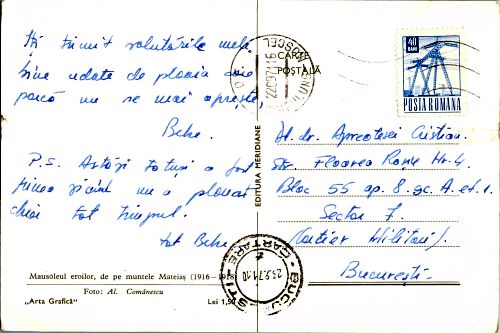 Îți trimit salutările mele
bine udate de ploaia care
parcă nu se mai oprește,
Bebe.
P.S. Astăzi totuși a fost
prima zi cînd nu a plouat
chiar tot timpul.
tot Bebe
Mausoleul eroilor, de pe muntele Mateiaș (1916–1918)
Foto: Al. Comănescu
„Arta Grafică" Lei 1,50
EDITURA MERIDIANE
CARTE
POȘTALĂ
40
BANI
POSTA ROMANA
22097116
BUCUREȘTI
CARTARE
23.9.71.10
Dl. dr. Apreotesei Cristian.
Str. Floarea Roșie Nr. 4.
Bloc 55 ap. 8. sc. A. et. 1.
Sector 7.
(Cartier Militari).
București.